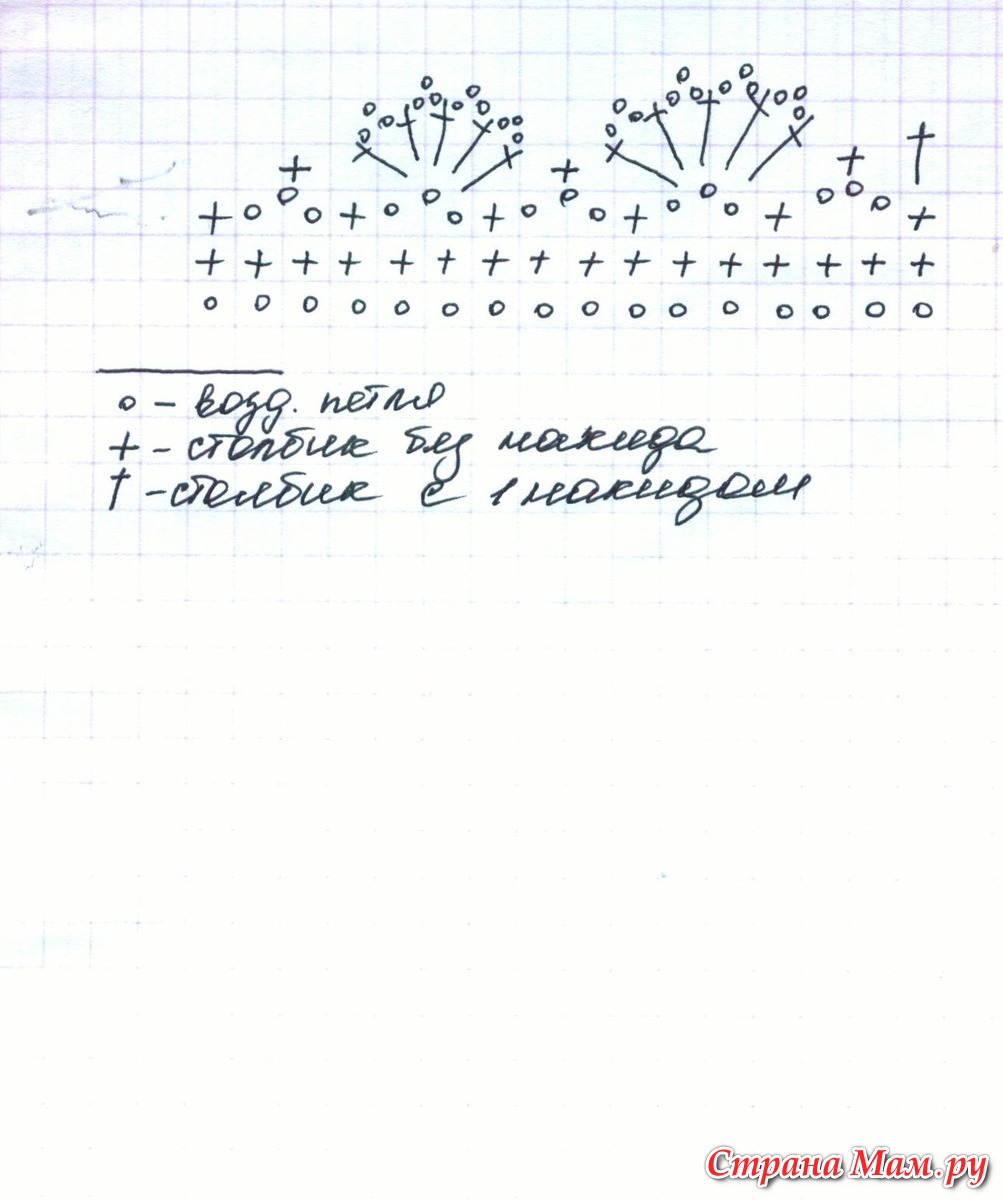 о - возд. петля
+ - столбик без накида
† - столбик с 1 накидом
Страна Мам.ру